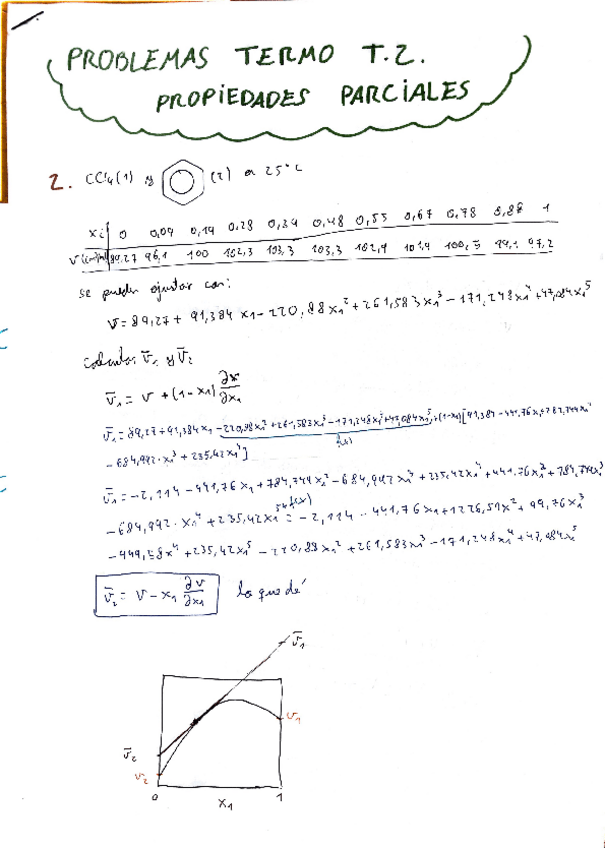 PROBLEMAS TERMO T.2.
PROPIEDADES PARCIALES
2. CCl4(1) y (2) a 25°C
x1 0 0,09 0,19 0,28 0,34 0,48 0,55 0,67 0,78 0,88 1
89,27 96,1 100 102,3 103,3 103,3 102,9 101,4 99,1 97,2
se pueden ajustar con:
v = 89,27 + 91,384 x1 - 220,88 x1² + 261,583 x1³ - 171,248 x1⁴ + 47,084 x1⁵
v̄1 y v̄2
v̄1 = v + (1-x1) ∂v/∂x1
v̄1 = 89,27 + 91,384 x1 - 220,88 x1² + 261,583 x1³ - 171,248 x1⁴ + 47,084 x1⁵ + (1-x1)[91,384 - 441,76 x1 +
f(x)
- 684,992 · x1³ + 235,42 x1⁴]
v̄1 = -2,114 - 441,76 x1 + 784,749 x1² - 684,992 x1³ + 235,42 x1⁴ + 441,76 x1² + 784,749 x1³
- 684,992 · x1⁴ + 235,42 x1⁵ + f(x) = -2,114 - 441,76 x1 + 1226,51 x² + 99,76 x1³
- 449,58 x⁴ + 235,42 x1⁵ - 220,88 x1² + 261,583 x1³ - 171,248 x1⁴ + 47,084 x1⁵
v̄2 = v - x1 ∂v/∂x1 lo que dé
v̄1
v1
v̄2
v2
0 x1 1